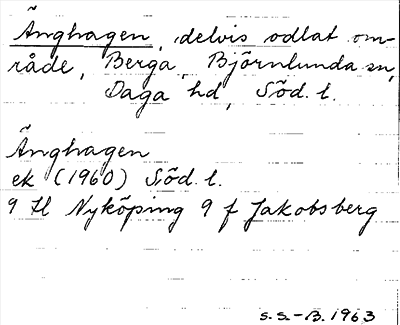 Änghagen, delvis odlat om-
råde, Berga, Björnlunda sn,
Daga hd, Söd. l.
Änghagen
ek (1960) Söd. l.
9 H Nyköping 9 f Jakobsberg
S.S.-B. 1963